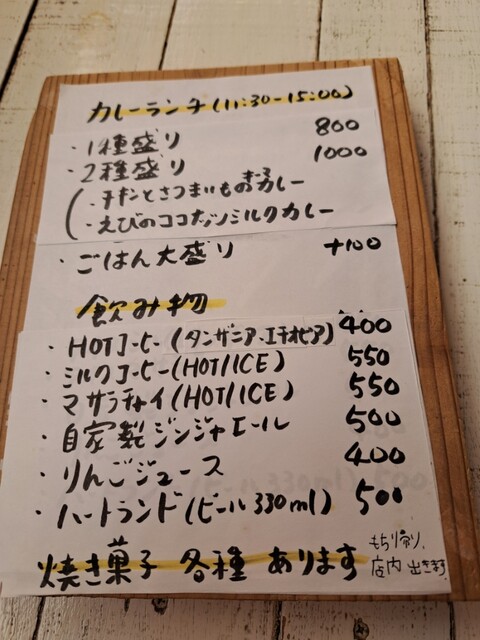 カレーランチ(11:30-15:00)
・1種盛り 800
・2種盛り 1000
・チキンとさつまいものキーマカレー
・えびのココナッツミルクカレー
・ごはん大盛り +100
飲み物
・HOTコーヒー(タンザニア・エチオピア) 400
・ミルクコーヒー(HOT/ICE) 550
・マサラチャイ(HOT/ICE) 550
・自家製ジンジャエール 500
・りんごジュース 400
・ハートランド(ビール330ml) 500
焼き菓子 各種 あります
もち帰り、
店内 出きます